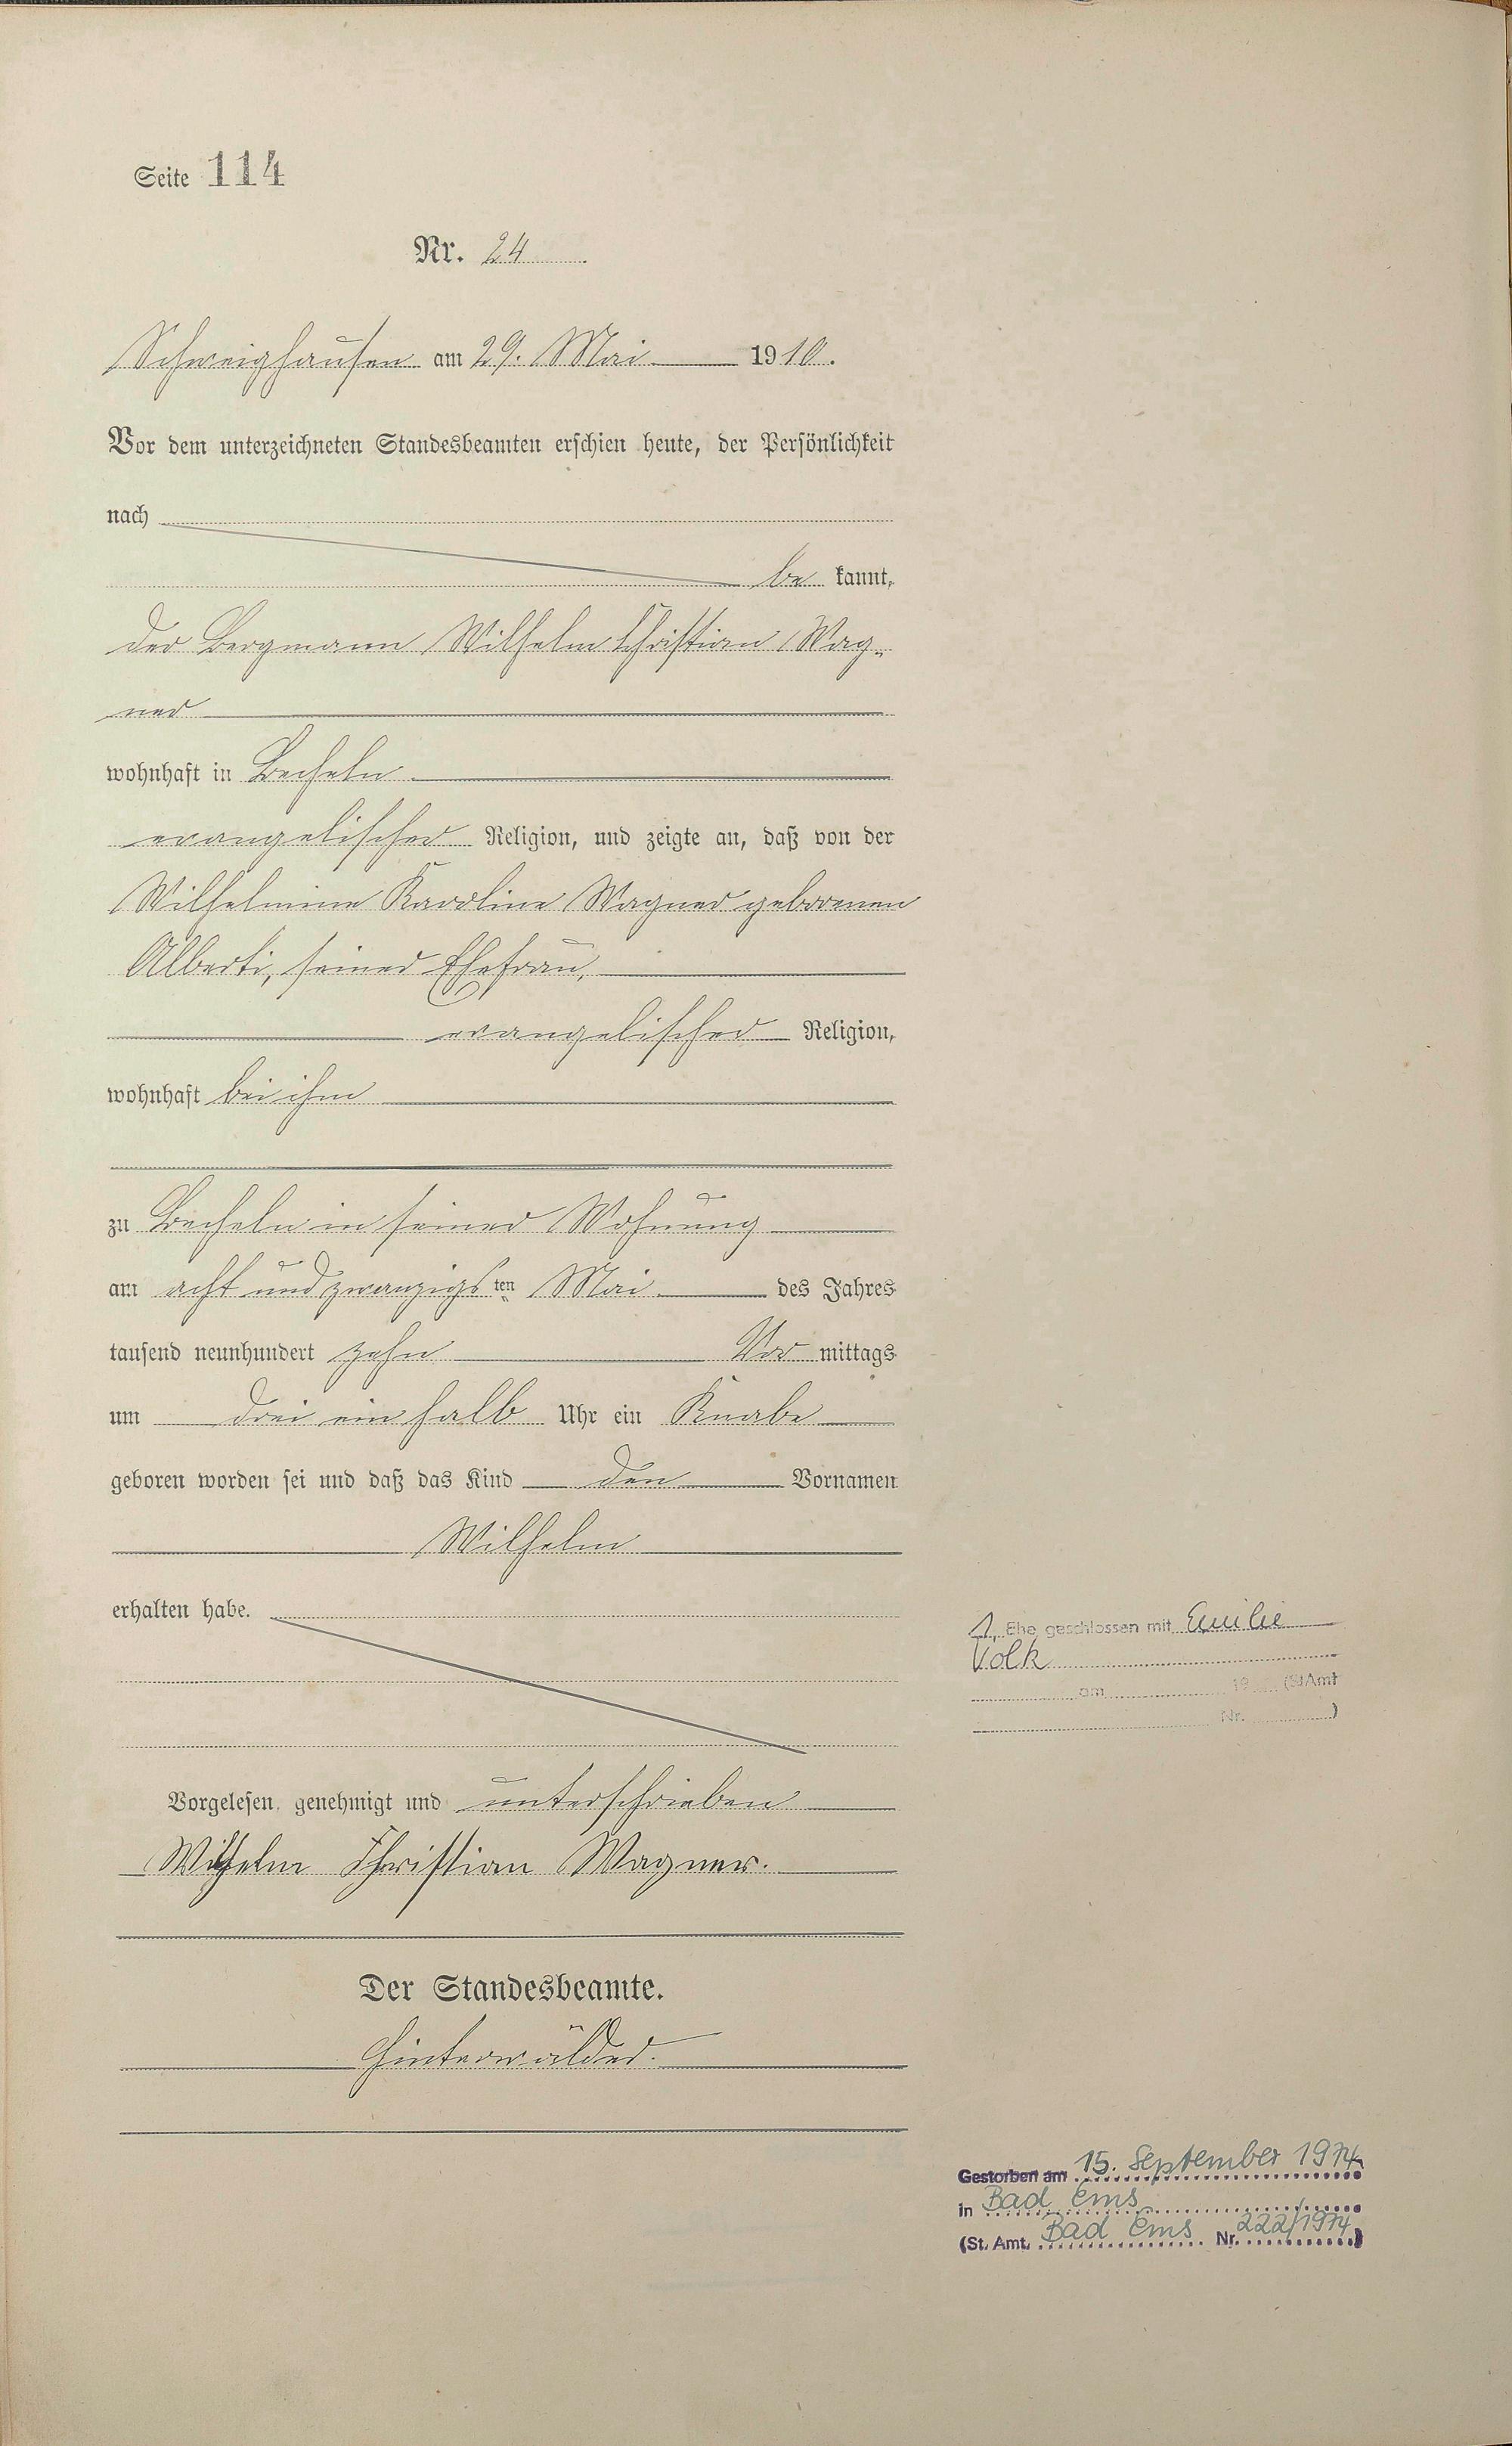 Seite 114
Nr. 24
Schweighausen am 29. Mai 1910.
Vor dem unterzeichneten Standesbeamten erschien heute, der Persönlichkeit
nach
be kannt,
der Bergmann Wilhelm Christian Wag-
ner
wohnhaft in Becheln
evangelischer Religion, und zeigte an, daß von der
Wilhelmine Karoline Wagner geborenen
Alberti, seiner Ehefrau,
evangelischer Religion,
wohnhaft bei ihm
zu Becheln in seiner Wohnung
am acht und zwanzigs ten Mai des Jahres
tausend neunhundert zehn Vor mittags
um drei ein halb Uhr ein Knabe
geboren worden sei und daß das Kind den Vornamen
Wilhelm
erhalten habe.
Vorgelesen, genehmigt und unterschrieben
Wilhelm Christian Wagner.
Der Standesbeamte.
Hinterwälder.
1. Ehe geschlossen mit Emilie
Volk
am 19 (StAmt
Nr. )
Gestorben am 15. September 1974
in Bad Ems
(St. Amt. Bad Ems Nr. 222/1974)